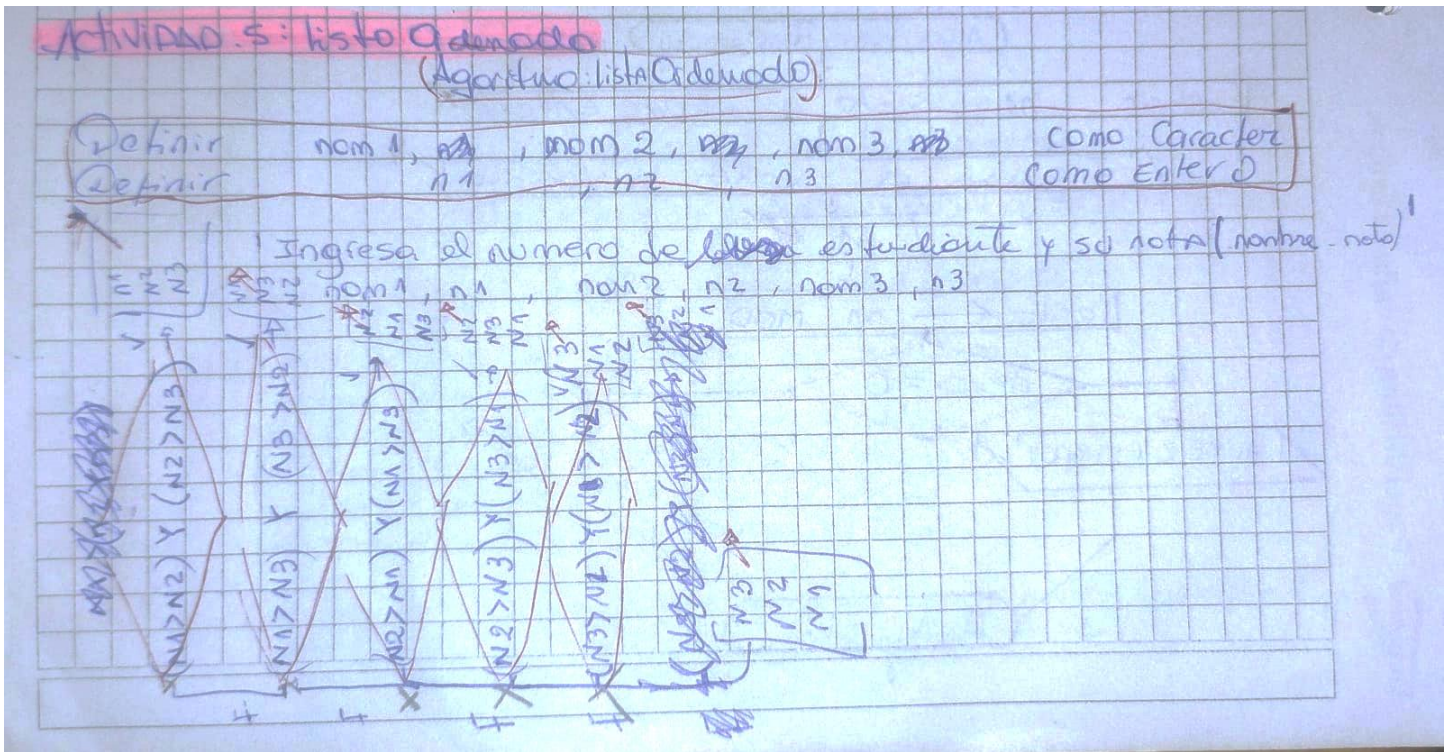 ACTIVIDAD.5: listo Odenado
(Agoritmo: listA Odenado)
Definir nom1, nom2, nom3 como Caracter
Definir n1, n2, n3 como Entero
'Ingresa el numero de estudiante y su notA (nombre-nota)'
nom1, n1, nom2, n2, nom3, n3
N1
N2
N3
N1
N3
N2
N2
N1
N3
N2
N3
N1
N3
N1
N2
(N1>N2) Y (N2>N3)
(N1>N3) Y (N3>N2)
(N2>N1) Y (N1>N3)
(N2>N3) Y (N3>N1)
V
F
F
F
F
N3
N2
N1